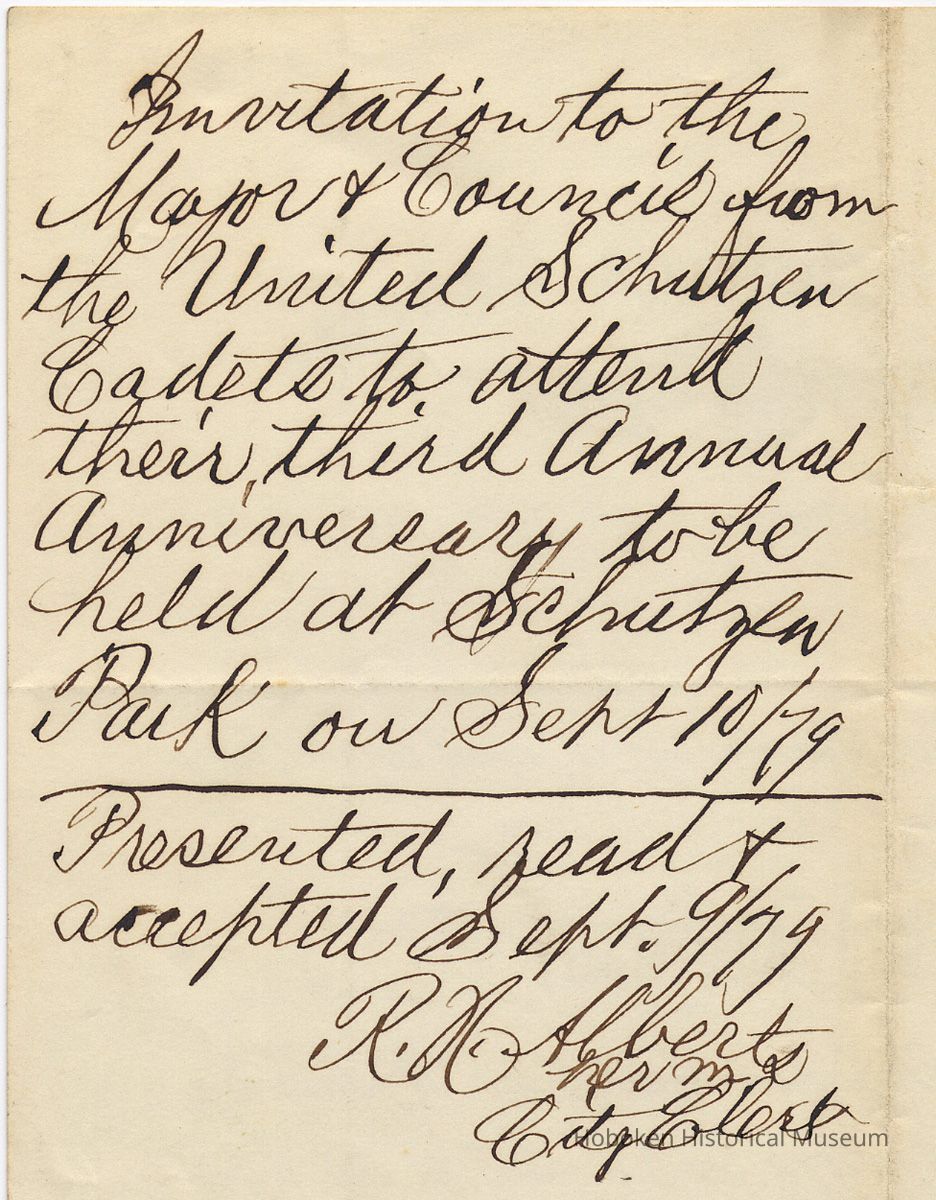 Invitation to the
Mayor & Council from
the United Schutzen
Cadets to attend
their, third Annual
Anniversary to be
held at Schutzen
Park on Sept 10/79
Presented, read &
accepted Sept. 9/79
R. H. Alberts
per m
City Clerk
Hoboken Historical Museum